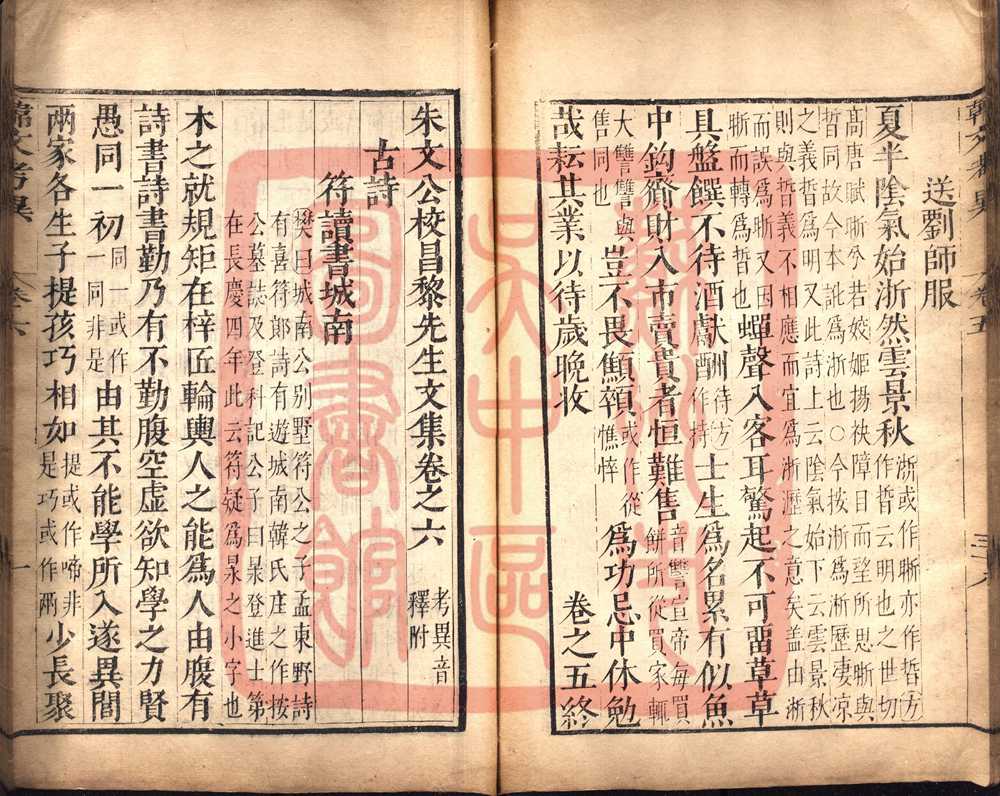 送劉師服
夏半陰氣始淅然雲景秋淅或作晣亦作晢方作晢云明也之世切
高唐賦晣兮若姣姬揚袂障日而望所思晣與晢同故今本訛爲浙也○今按淅爲淅歷凄凉
之義晢爲明又此詩上云陰氣始下云雲景秋則與晢義不相應而宜爲淅瀝之意矣盖由淅
而誤爲晣又因晣而轉爲晢也蟬聲入客耳驚起不可留草草
具盤饌不待酒獻酬待方作持士生爲名累有似魚
中鈎齎財入市賣貴者恒難售音讐宣帝每買餅所從買家輒
大讐讐與售同也豈不畏顦顇或作從憔悴爲功忌中休勉
哉耘其業以待歲晚收
卷之五終
韓文考異
卷五
朱文公校昌黎先生文集卷之六考異音釋附
古詩
符讀書城南
樊曰城南公别墅符公之子孟東野詩有喜符郎詩有遊城南韓氏庄之作按
公墓誌及登科記公子曰昶登進士第在長慶四年此云符疑爲昶之小字也
木之就規矩在梓匠輪輿人之能爲人由腹有
詩書詩書勤乃有不勤腹空虛欲知學之力賢
愚同一初同一或作一同非是由其不能學所入遂異閭
兩家各生子提孩巧相如提或作啼非是巧或作兩少長聚
韓文考異
卷六
一
蘇州市
吳中區
圖書館